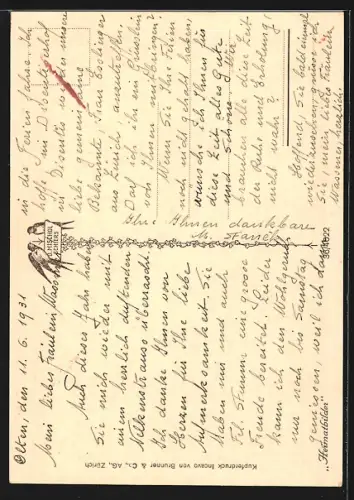 Olten, den 11. 6. 1931
Mein liebes Fräulein Wassmer,
Auch dieses Jahr haben
Sie mich wieder mit
einem herrlich duftenden
Nelkenstrauss überrascht.
Ich danke Ihnen von
Herzen für Ihre liebe
Aufmerksamkeit. Sie
haben mir und auch
Frl. Stamm eine grosse
Freude bereitet. Leider
kann ich den Wohlgeruch
nur noch bis Samstag
geniessen, weil ich dann
in die Ferien gehe. Ich
hoffe im Disentiserhof
in Disentis wieder unsere
liebe gemeinsame
Bekannte, Frau Esslinger
aus Zürich anzutreffen.
Darf ich ihr ein Grüsslein
von Ihnen mitbringen?
Wenn Sie Ihre Ferien
noch nicht gehabt haben,
wünsche ich Ihnen für
die Zeit alles Gute
und Schöne. Wir
brauchen alle diese Zeit
der Ruhe und Erholung,
nicht wahr?
Hoffend, Sie bald einmal
wiederzusehen, grüsse ich
Sie, mein liebes Fräulein
Wassmer, herzlich.
Ihre Ihnen dankbare
"Heimatbilder"
Kupferdruck Incavo von Brunner & Co., AG., Zürich